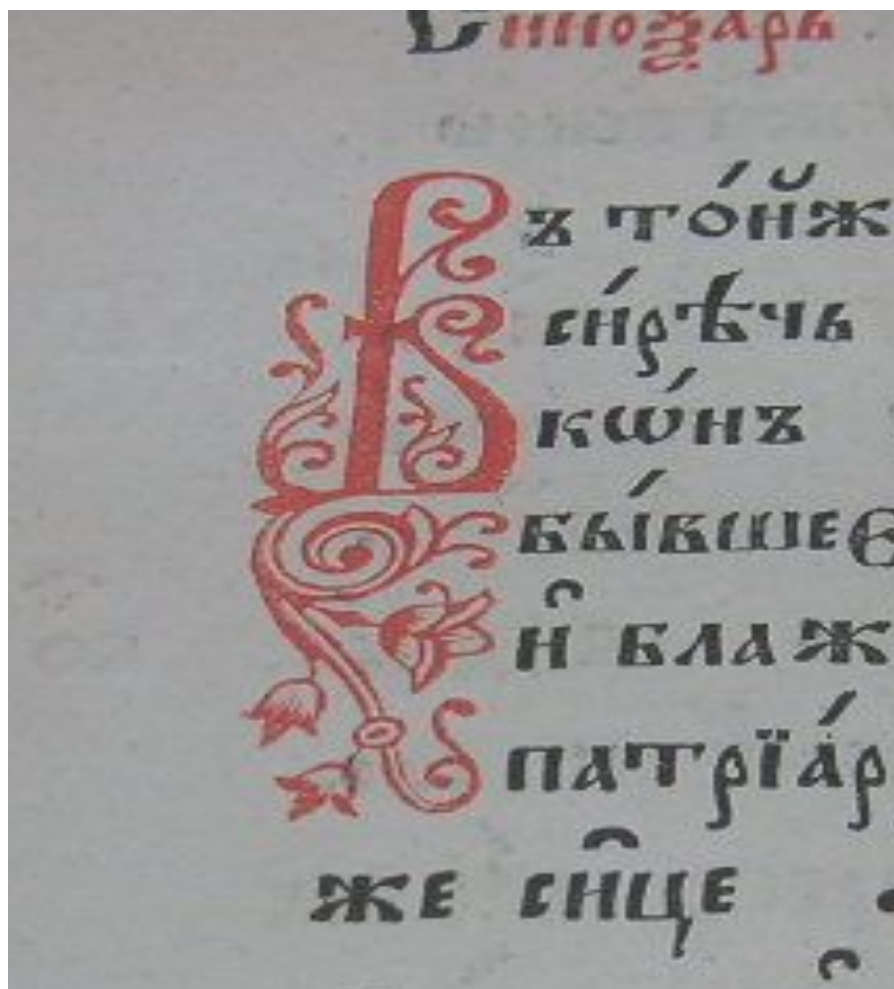 Сѷноѯарь
Въ то́йж
си́рѣчь
кѡ́нъ
бы́вшее
и҆ блаж
патрїа́р
же си̑це